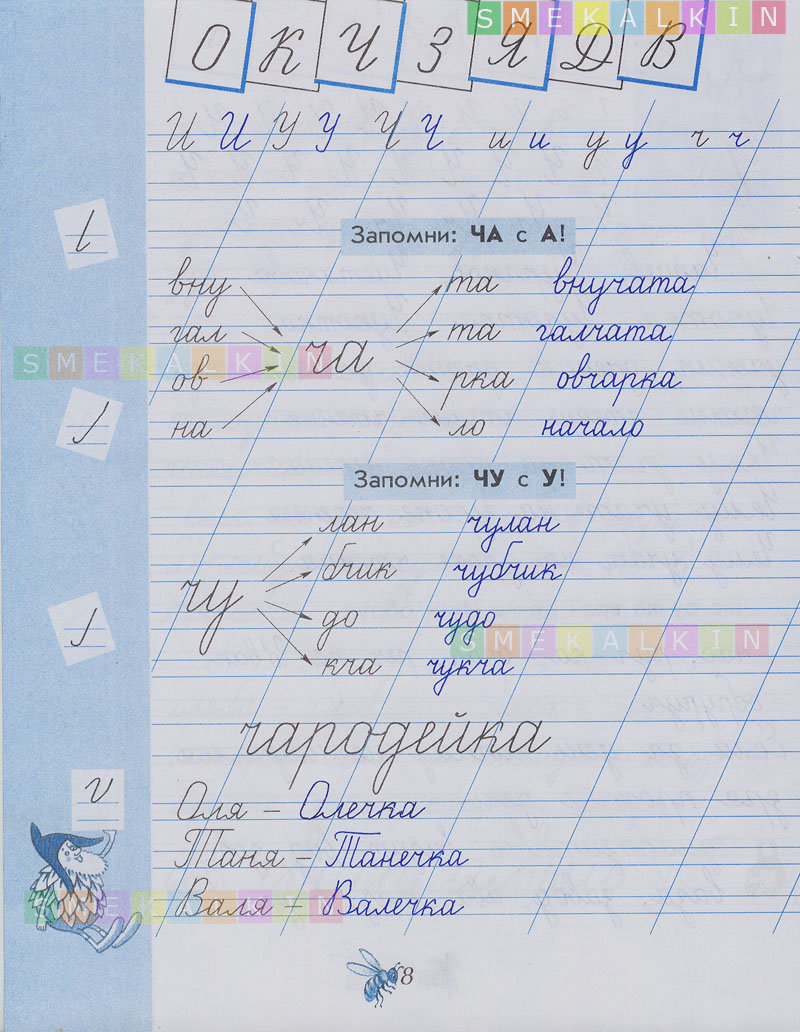 SMEKALKIN
О К Ч З Я Д В
И И У У Ч Ч и и у у ч ч
Запомни: ЧА с А!
вну та внучата
гал та галчата
ча
SMEKALKIN
ов рка овчарка
на ло начало
Запомни: ЧУ с У!
лан чулан
бчик чубчик
чу
до чудо
SMEKALKIN
кча чукча
чародейка
Оля – Олечка
Таня – Танечка
Валя – Валечка
SMEKALKIN
8